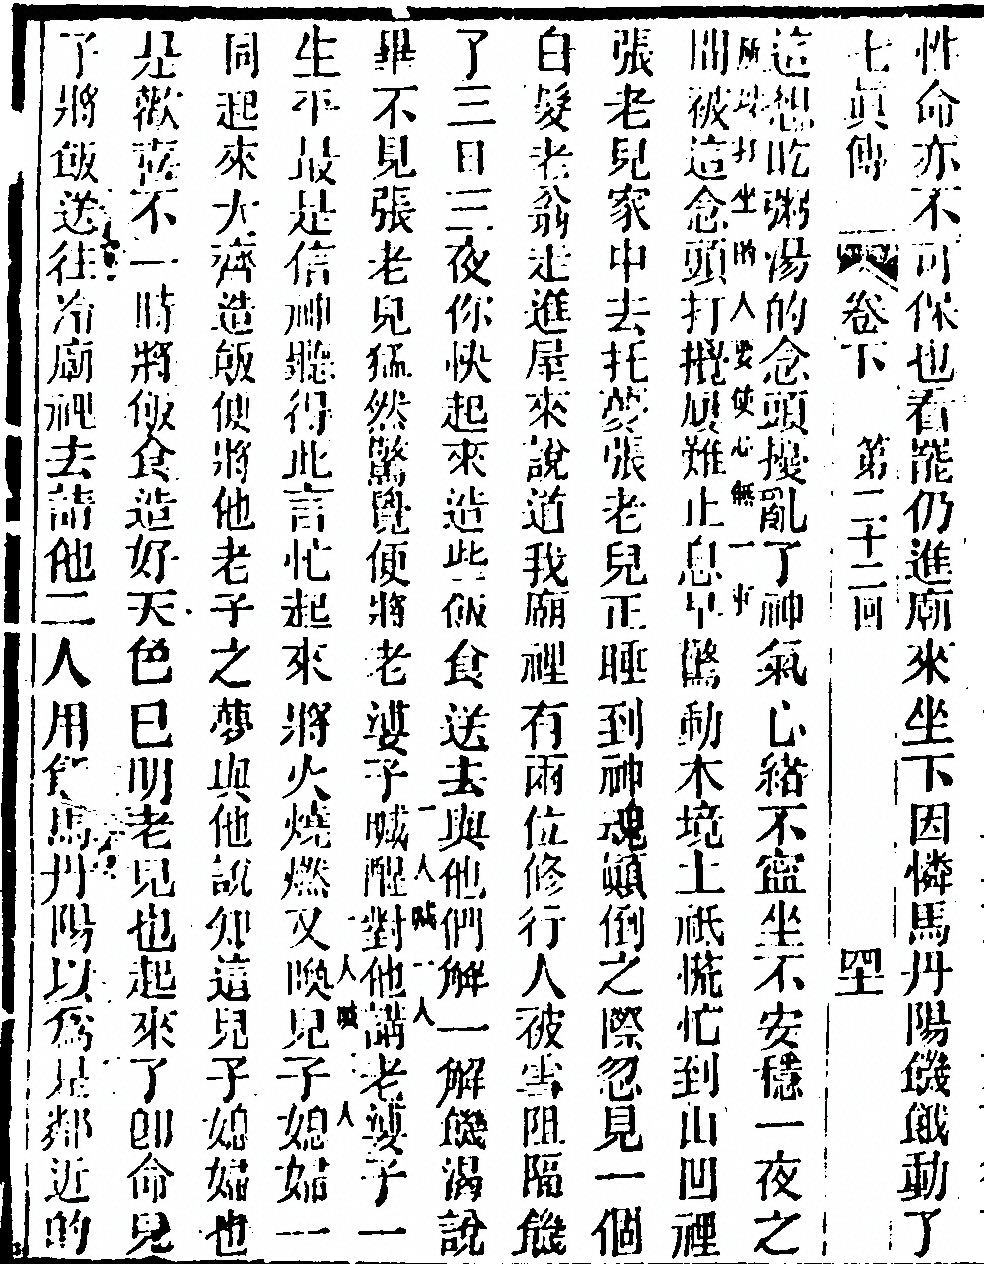 性命亦不可保也看罷仍進廟來坐下因憐馬丹陽饑餓動了
七眞傳 卷下 第二十二回 四十
這想吃粥湯的念頭擾亂了神氣心緒不寧坐不安穩一夜之
所以打坐的人要使心無一事
間被這念頭打攪屢難止息早驚動本境土祇慌忙到山凹裡
張老兒家中去托夢張老兒正睡到神魂顛倒之際忽見一個
白髮老翁走進屋來說道我廟裡有兩位修行人被雪阻隔饑
了三日三夜你快起來造些飯食送去與他們解一解饑渴說
畢不見張老兒猛然驚覺便將老婆子喊醒對他講老婆子一
一人喊一人
生平最是信神聽得此言忙起來將火燒燃又喚兒子媳婦一
一人喊一人
同起來大齊造飯便將他老子之夢與他說知這兒子媳婦也
是歡喜不一時將飯食造好天色已明老兒也起來了卽命兒
了將飯送往冷廟裡去請他二人用飯馬丹陽以爲是鄰近的